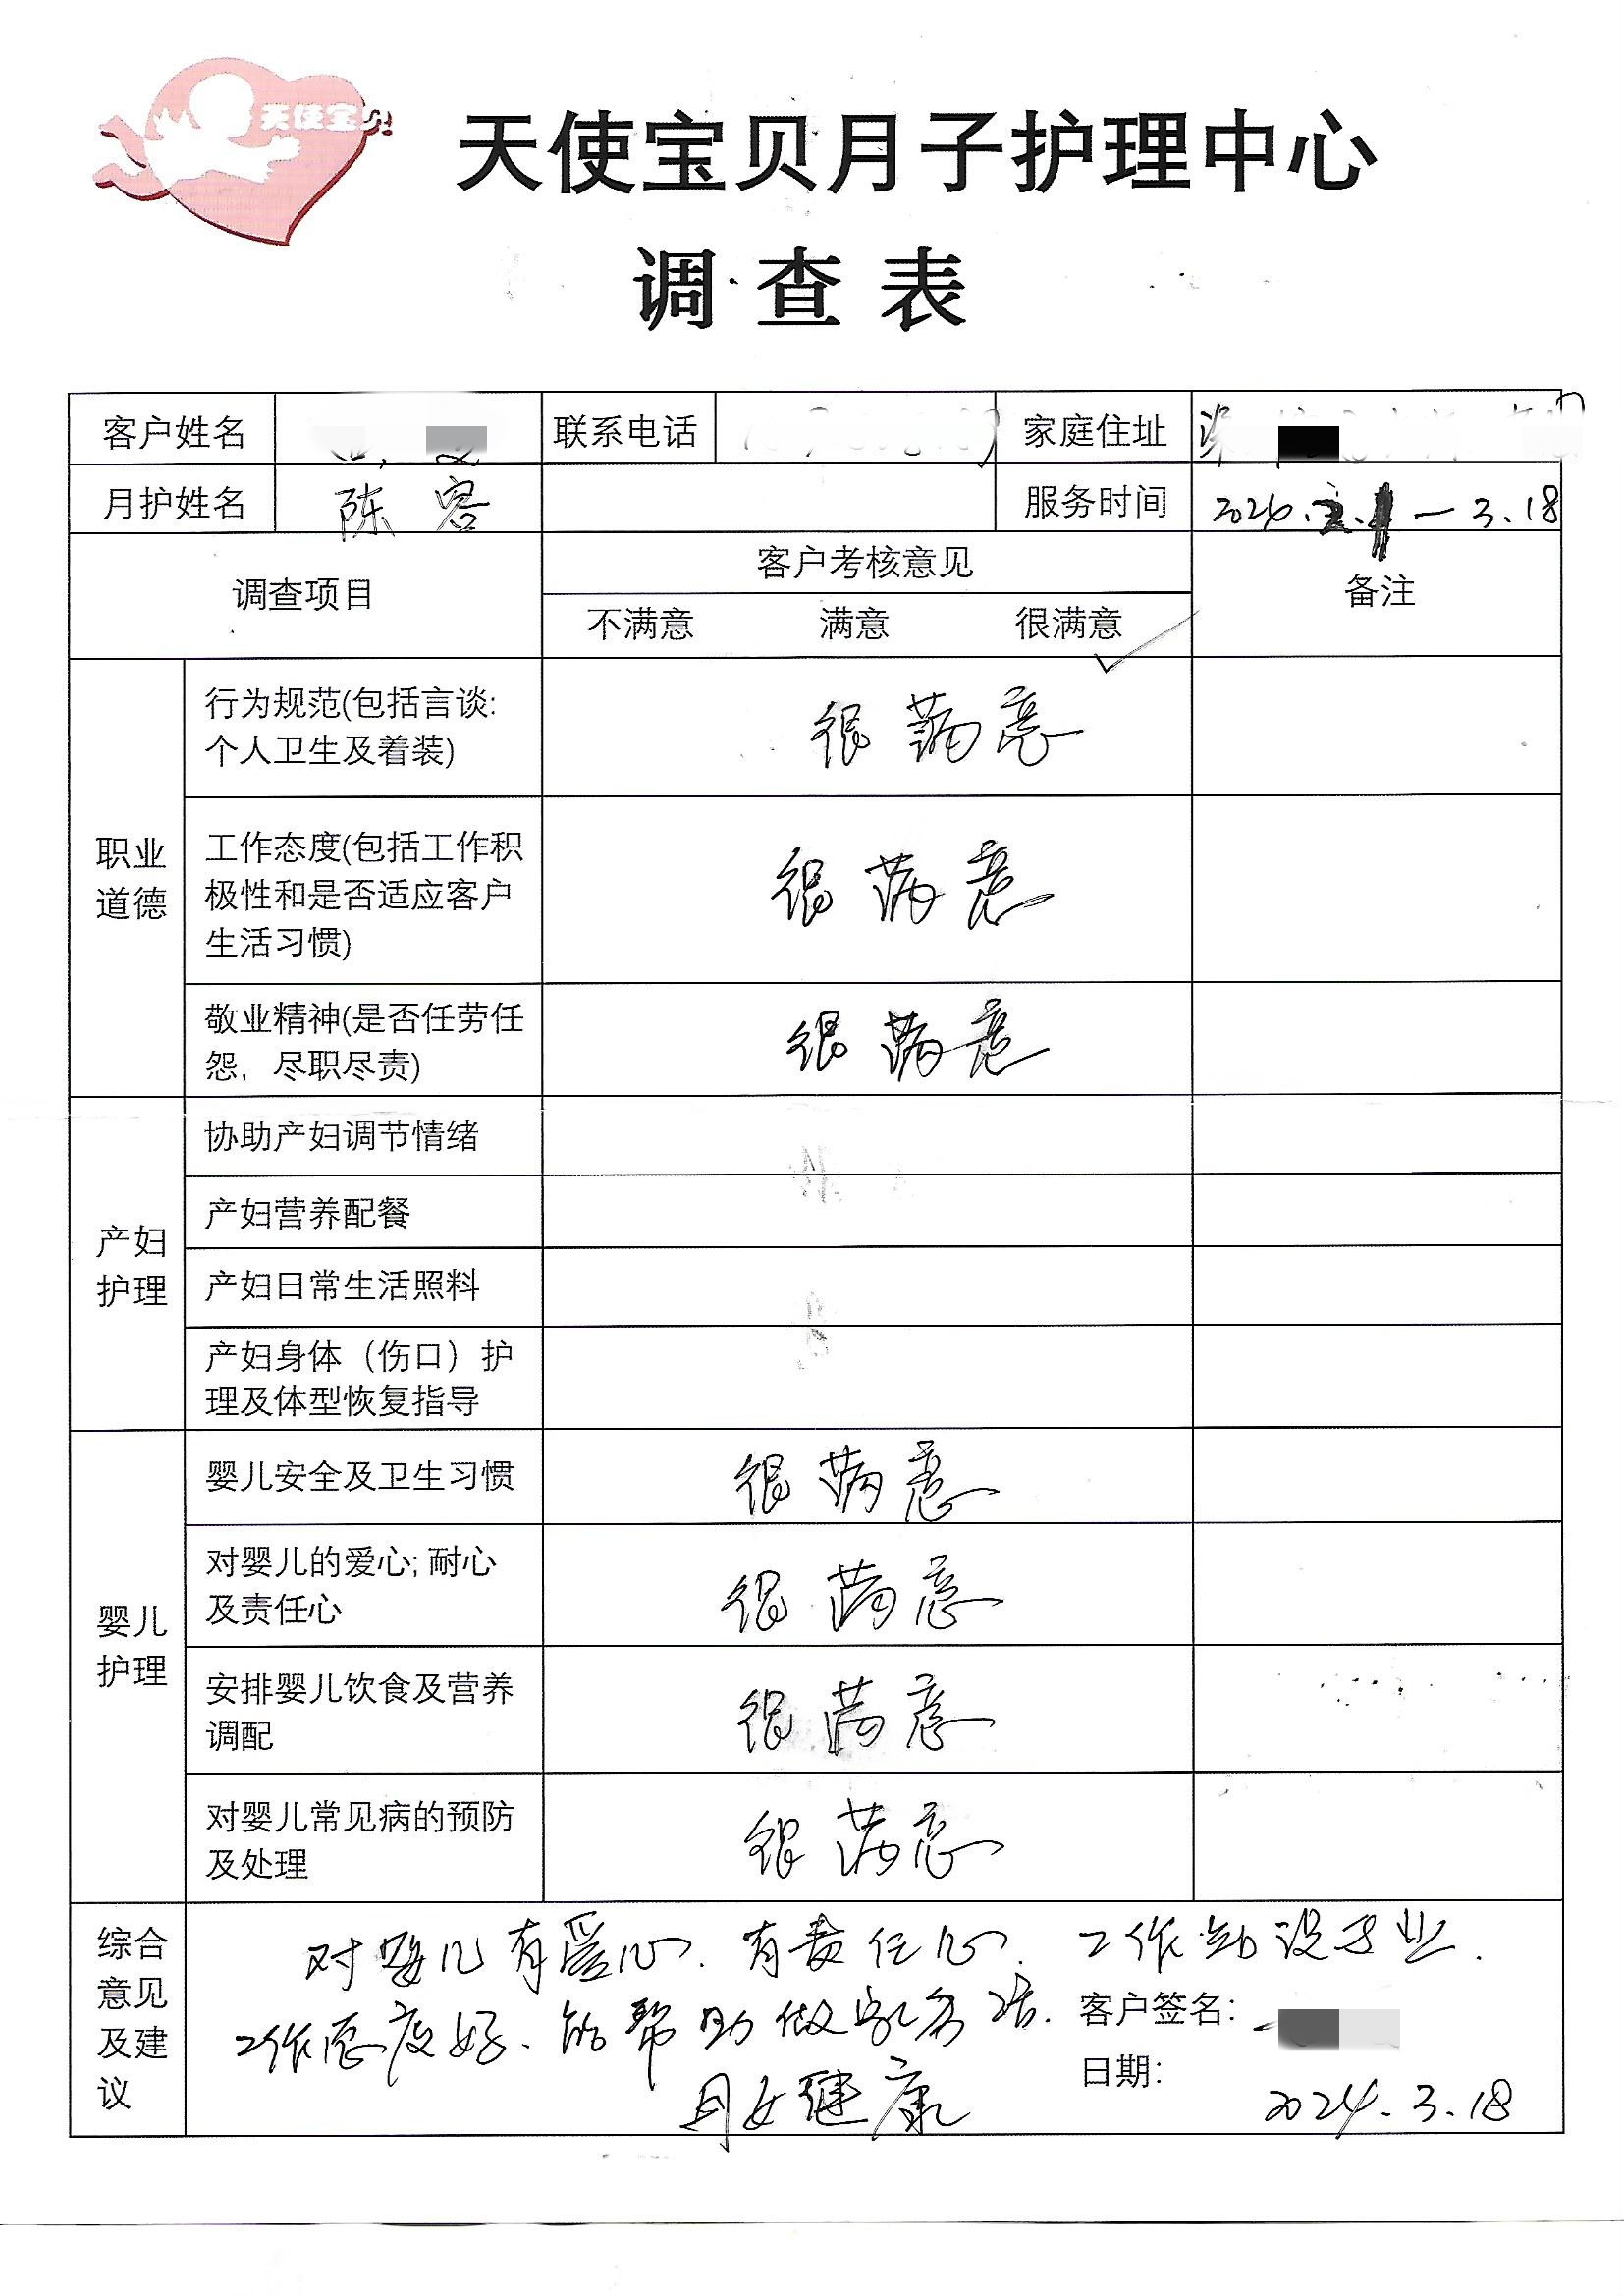 天使宝贝
天使宝贝月子护理中心
调查表
客户姓名 联系电话 家庭住址
月护姓名 陈容 服务时间 2024. — 3.18
调查项目 客户考核意见 备注
不满意 满意 很满意 ✓
职业
道德
行为规范(包括言谈:
个人卫生及着装)
很满意
工作态度(包括工作积
极性和是否适应客户
生活习惯)
很满意
敬业精神(是否任劳任
怨，尽职尽责)
很满意
产妇
护理
协助产妇调节情绪
产妇营养配餐
产妇日常生活照料
产妇身体（伤口）护
理及体型恢复指导
婴儿
护理
婴儿安全及卫生习惯
很满意
对婴儿的爱心; 耐心
及责任心
很满意
安排婴儿饮食及营养
调配
很满意
对婴儿常见病的预防
及处理
很满意
综合
意见
及建
议
对婴儿有爱心. 有责任心. 工作
工作态度好、能帮助做家务活.
健康
客户签名:
日期:
2024.3.18